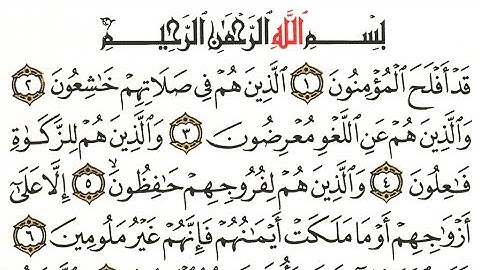 بِسْمِ ٱللَّهِ ٱلرَّحْمَٰنِ ٱلرَّحِيمِ
قَدْ أَفْلَحَ ٱلْمُؤْمِنُونَ ١ ٱلَّذِينَ هُمْ فِى صَلَاتِهِمْ خَٰشِعُونَ ٢
وَٱلَّذِينَ هُمْ عَنِ ٱللَّغْوِ مُعْرِضُونَ ٣ وَٱلَّذِينَ هُمْ لِلزَّكَوٰةِ
فَٰعِلُونَ ٤ وَٱلَّذِينَ هُمْ لِفُرُوجِهِمْ حَٰفِظُونَ ۙ ٥ إِلَّا عَلَىٰٓ
أَزْوَٰجِهِمْ أَوْ مَا مَلَكَتْ أَيْمَٰنُهُمْ فَإِنَّهُمْ غَيْرُ مَلُومِينَ ٦